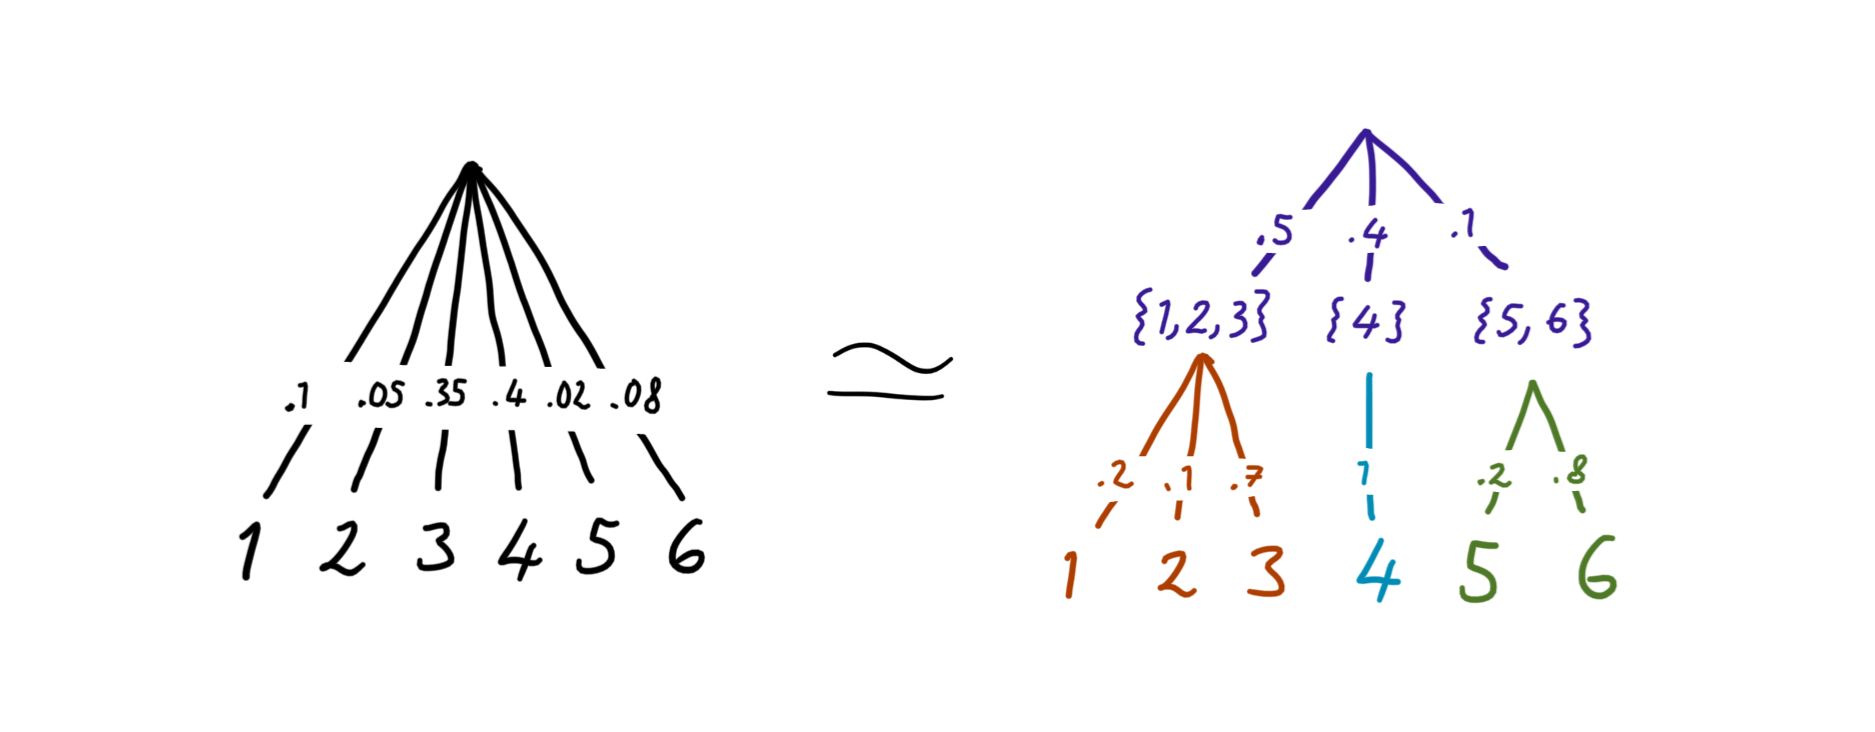 .1 .05 .35 .4 .02 .08
1 2 3 4 5 6
≅
.5 .4 .1
{1,2,3} {4} {5,6}
.2 .1 .7 1 .2 .8
1 2 3 4 5 6